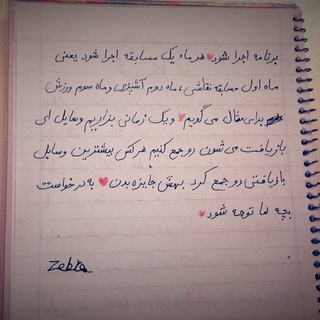 برنامه اجرا شود♥هر ماه یک مسابقه اجرا شود یعنی
ماه اول مسابقه نقاشی، ماه دوم آشپزی و ماه سوم ورزش
برای مثال می گویم♥و یک زمانی بزاریم وسایل ای
بازیافت می شون رو جمع کنیم هرکس بیشترین وسایل
بازیافتی رو جمع کرد بهش جایزه بدن♥به درخواست
بچه ها توجه شود♥
Zebra